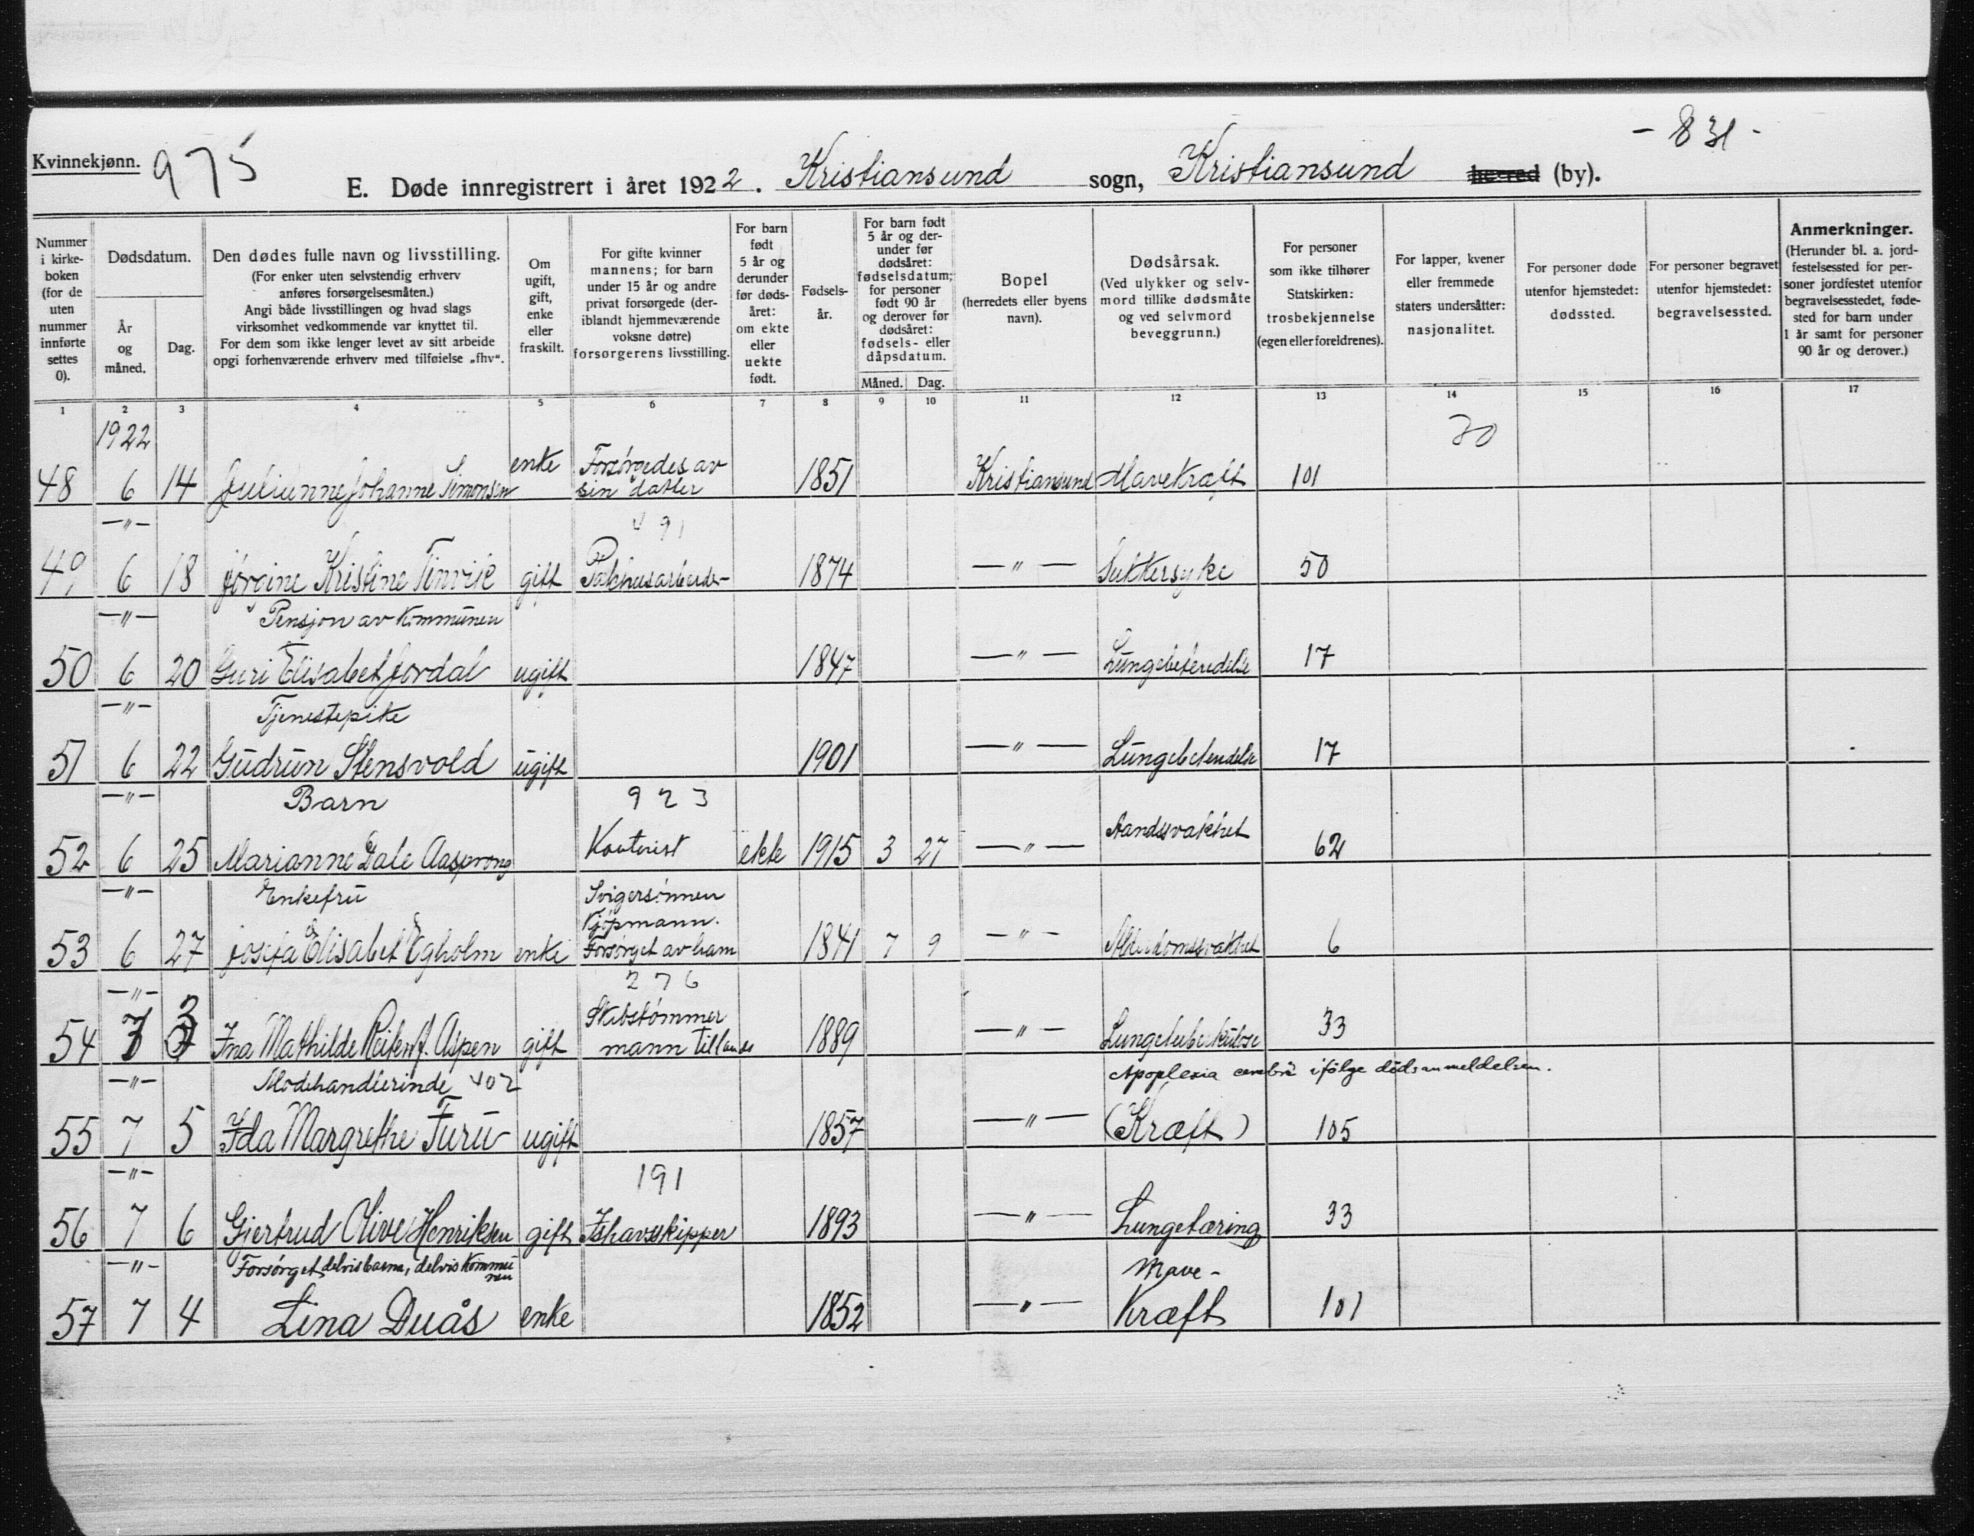 - 831 -
Kvinnekjønn. 975
E. Døde innregistrert i året 1922. Kristiansund sogn, Kristiansund herred (by).
Nummer i kirkeboken (for de uten nummer innførte settes 0).
Dødsdatum.
År og måned.
Dag.
Den dødes fulle navn og livsstilling.
(For enker uten selvstendig erhverv anføres forsørgelsesmåten.)
Angi både livsstillingen og hvad slags virksomhet vedkommende var knyttet til.
For dem som ikke lenger levet av sitt arbeide opgi forhenværende erhverv med tilføielse „fhv“.
Om ugift, gift, enke eller fraskilt.
For gifte kvinner mannens; for barn under 15 år og andre privat forsørgede (deriblandt hjemmeværende voksne døtre) forsørgerens livsstilling.
For barn født 5 år og derunder før dødsåret: om ekte eller uekte født.
Fødselsår.
For barn født 5 år og derunder før dødsåret: fødselsdatum; for personer født 90 år og derover før dødsåret: fødsels- eller dåpsdatum.
Måned. Dag.
Bopel
(herredets eller byens navn).
Dødsårsak.
(Ved ulykker og selvmord tillike dødsmåte og ved selvmord beveggrunn.)
For personer som ikke tilhører Statskirken: trosbekjennelse (egen eller foreldrenes).
For lapper, kvener eller fremmede staters undersåtter: nasjonalitet.
For personer døde utenfor hjemstedet: dødssted.
For personer begravet utenfor hjemstedet: begravelsessted.
Anmerkninger.
(Herunder bl. a. jordfestelsessted for personer jordfestet utenfor begravelsesstedet, fødested for barn under 1 år samt for personer 90 år og derover.)
1 2 3 4 5 6 7 8 9 10 11 12 13 14 15 16 17
1922 20
48 6 14 Julianne Johanne Simonsen enke Forsørgedes av sin datter 1851 Kristiansund Mavekræft 101
—"— 491
49 6 18 Jørgine Kristine Tinvik gift Pakhusarbeider 1874 —"— Sukkersyke 50
—"— Pensjon av Kommunen
50 6 20 Guri Elisabet Jordal ugift 1847 —"— Lungebetendelse 17
—"— Tjenestepike
51 6 22 Gudrun Stensvold ugift 1901 —"— Lungebetendelse 17
—"— Barn 923
52 6 25 Marianne Dale Aasprong Kontorist ekte 1915 3 27 —"— Aandssvakhet 62
—"— Enkefru Svigersønnen Kjøpmann.
53 6 27 Josefa Elisabet Egholm enke Forsørget av ham 1841 7 9 —"— Alderdomssvakhet 6
—"— 276
54 7 3 Ina Mathilde Reiten f. Aspen gift Skibstømmermann tillands 1889 —"— Lungetuberkulose 33
—"— Modehandlerinde 402 Apoplexia cerebri ifølge dødsanmeldelsen.
55 7 5 Ida Margrethe Furu ugift 1857 —"— (Kræft) 105
—"— 191
56 7 6 Gjertrud Olive Henriksen gift Ishavsskipper 1893 —"— Lungetæring 33
—"— Forsørget delvis barna, delvis kommunen Mave-
57 7 4 Lina Duås enke 1852 —"— Kræft 101